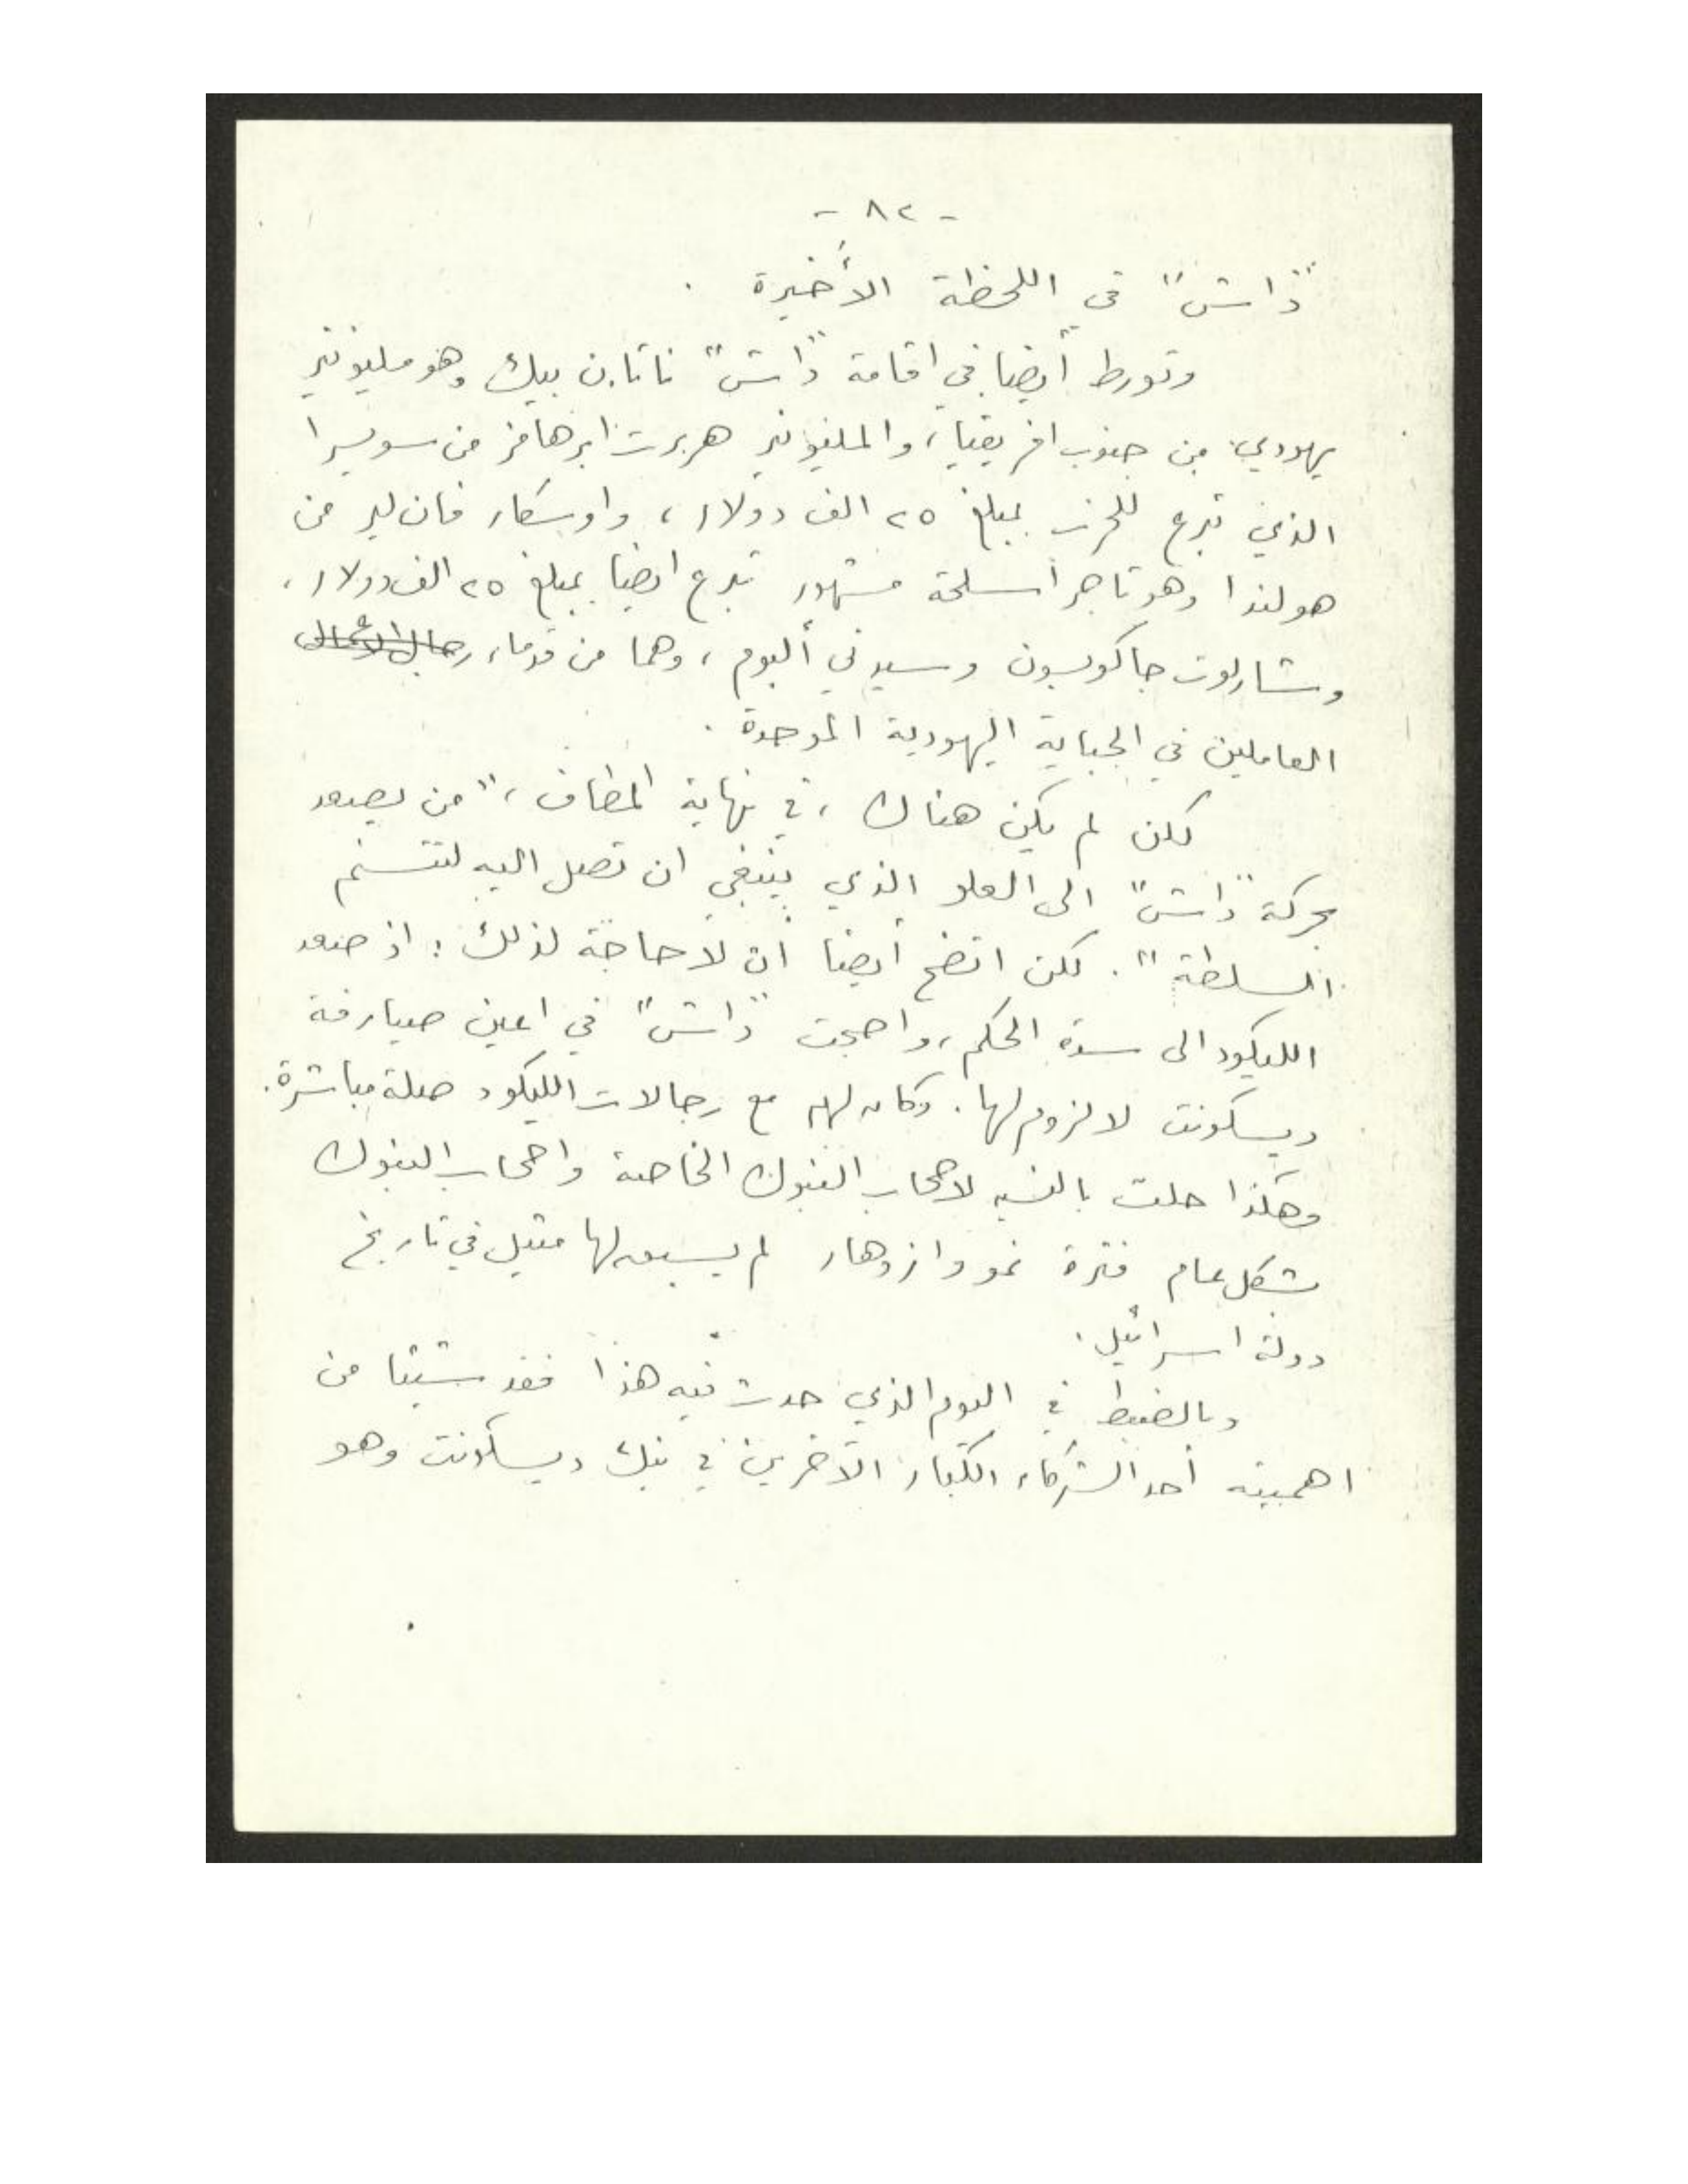 - ٨٢ -
"داش" في اللحظة الأخيرة .
وتورط أيضا في اقامة "داش" ناتان بيك وهو مليونير
يهودي من جنوب افريقيا، والمليونير هربرت ابرهامز من سويسرا
الذي تبرع للحزب بمبلغ ٢٥ الف دولار، واوسكار فان لير من
هولندا وهو تاجر أسلحة مشهور تبرع ايضا بمبلغ ٢٥ الف دولار،
وشارلوت جاكوبسون وسيدني ألبوم، وهما من قدماء رجال الأعمال
العاملين في الجباية اليهودية الموحدة .
لكن لم يكن هناك، في نهاية المطاف، "من يصعد
بحركة "داش" الى العلو الذي ينبغي ان تصل اليه لتتسنم
السلطة". لكن اتضح أيضا ان لا حاجة لذلك: اذ صعد
الليكود الى سدة الحكم، واصبحت "داش" في اعين صيارفة
ديسكونت لا لزوم لها. وكان لهم مع رجالات الليكود صلة مباشرة.
وهكذا حلت بالنسبه لاصحاب البنوك الخاصة واصحاب البنوك
بشكل عام فترة نمو وازدهار لم يسبق لها مثيل في تاريخ
دولة اسرائيل.
وبالضبط في اليوم الذي حدث فيه هذا فقد شيئا من
اهميته أحد الشركاء الكبار الآخرين في بنك ديسكونت وهو